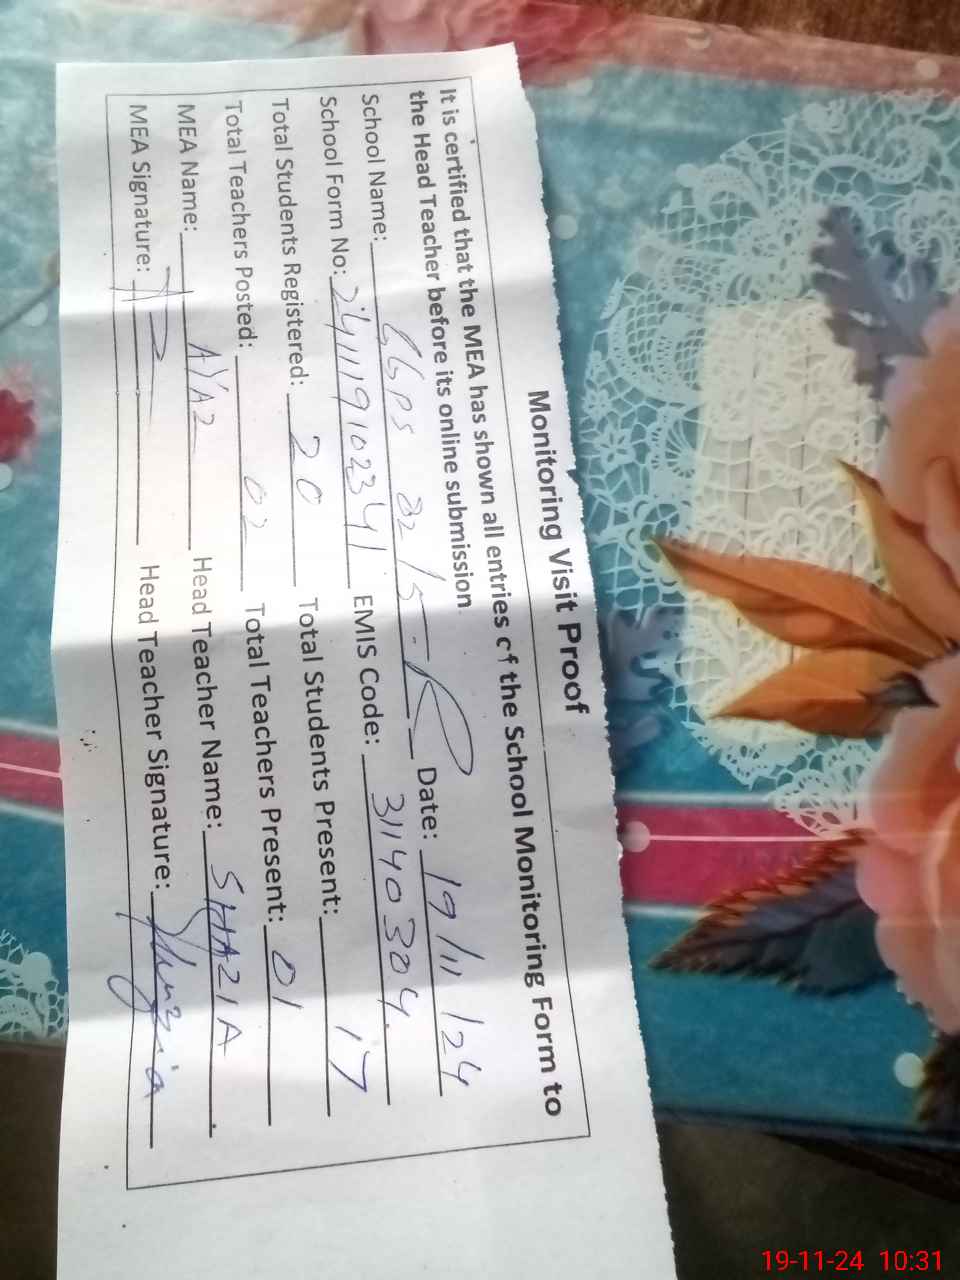 Monitoring Visit Proof
It is certified that the MEA has shown all entries of the School Monitoring Form to
the Head Teacher before its online submission.
School Name: GGPS 82/5-R Date: 19/11/24
School Form No: 241119102341 EMIS Code: 31140304
Total Students Registered: 20 Total Students Present: 17
Total Teachers Posted: 02 Total Teachers Present: 01
MEA Name: AYAZ Head Teacher Name: SHAZIA
MEA Signature: Head Teacher Signature: Shazia
19-11-24 10:31